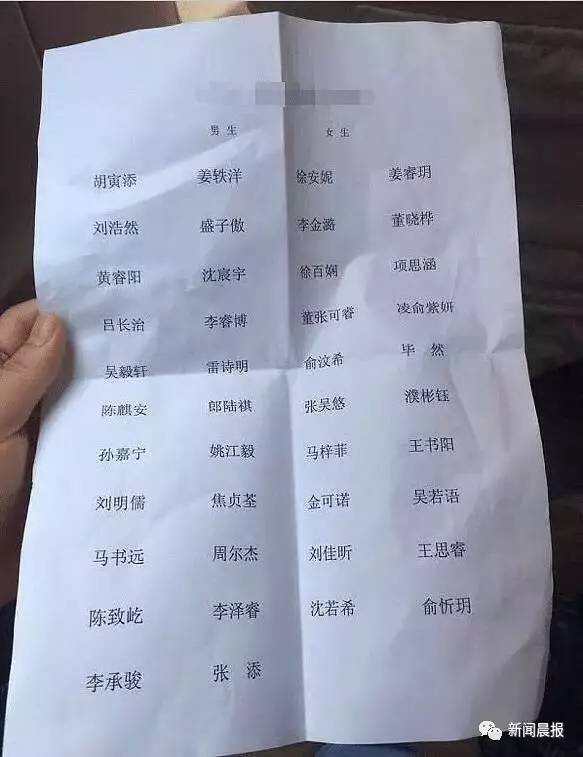 男生 女生
胡寅添 姜轶洋 徐安妮 姜睿玥
刘浩然 盛子傲 李金潞 董晓桦
黄睿阳 沈宸宇 徐百娴 项思涵
吕长治 李睿博 董张可睿 凌俞紫妍
吴毅轩 雷诗明 俞汶希 毕然
陈麒安 郎陆祺 张吴悠 濮彬钰
孙嘉宁 姚江毅 马梓菲 王书阳
刘明儒 焦贞荃 金可诺 吴若语
马书远 周尔杰 刘佳昕 王思睿
陈致屹 李泽睿 沈若希 俞忻玥
李承骏 张添
新闻晨报